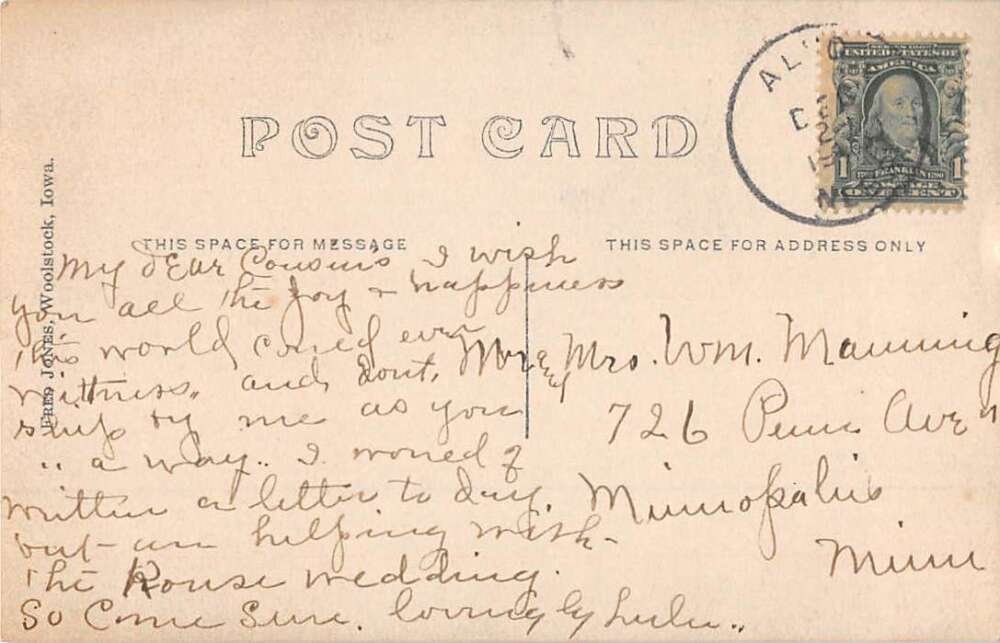 POST CARD
FRED JONES, Woolstock, Iowa.
SERIES 1902
UNITED STATES OF
AMERICA
1 FRANKLIN 1790 1
ONE CENT
THIS SPACE FOR MESSAGE
My dear Cousins I wish
you all the Joy & happiness
this world could ever
wittness,, and dont,
slip by me as you
,, a way,, I would of
written a letter to day,
but am helping with
the Rouse wedding.
So Come Sure. lovingly Lulu,,
THIS SPACE FOR ADDRESS ONLY
Mr and Mrs. Wm. Manning
726 Penn Ave n
Minnopalis
Minn